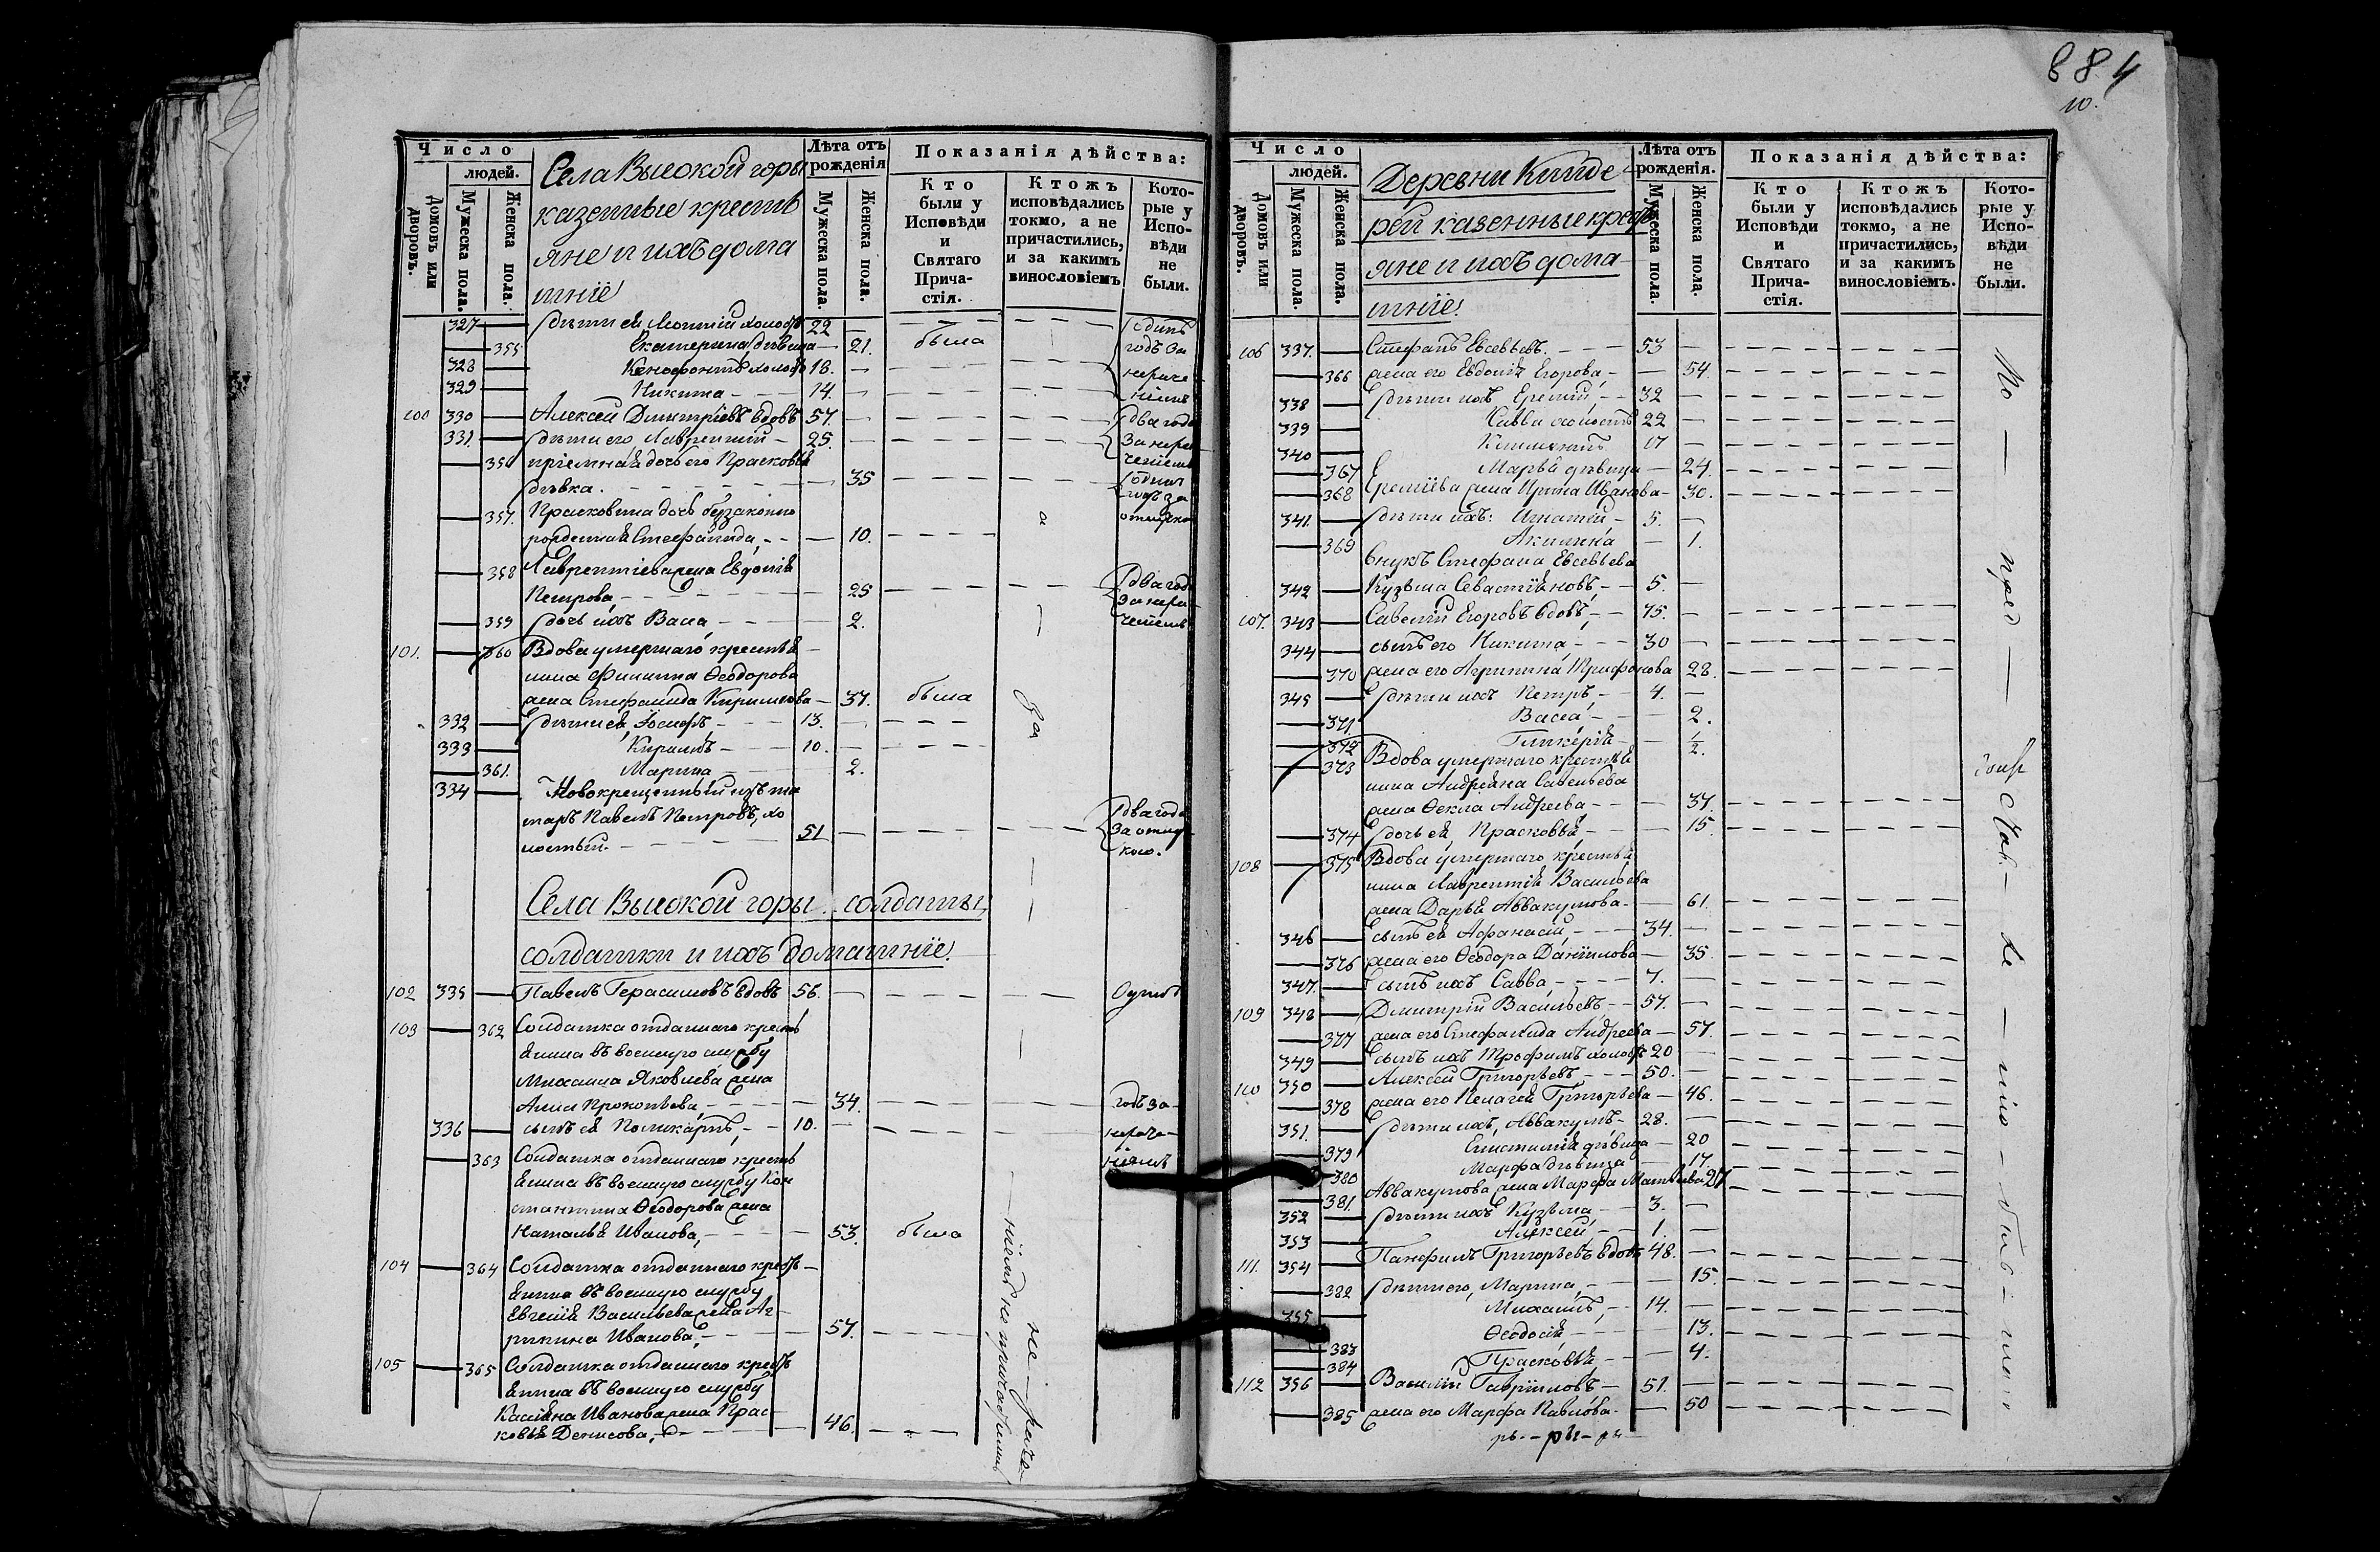 884
10.
Число
людей.
Домовъ или дворовъ.
Мужеска пола.
Женска пола.
Села Высокой горы
казенные кресть
яне и ихъ дома
шнїе
Лѣта отъ рожденія
Мужеска пола.
Женска пола.
Показанія дѣйства:
Кто были у Исповѣди и Святаго Прича-стія.
Ктожъ исповѣдались токмо, а не причастились, и за какимъ винословіемъ
Кото-рые у Испо-вѣди не были.
327 дѣти ея Леонтій холостъ 22
355 Екатерина дѣвица 21. была
328 Ксенофонтъ холостъ 18.
329 Никита 14.
100 330 Алексей Дмитріевъ вдовъ 57. два года
331. дѣти его Лаврентий 25. за нера
356 пріемная дочь его Прасковья
дѣвка. 35
357. Прасковьина дочь беззаконно
рожденная Стефанида, 10.
358 Лаврентіева жена Евдокія
Петрова 25 два года за нера
359 дочь ихъ Васса 2.
101. 360 Вдова умершаго крестья
нина Филиппа Ѳеодорова
жена Стефанида Кириллова 37. была
332 дѣти ея, Іосифъ 13.
333 Кириллъ 10.
361. Марина 2.
334 Новокрещенный изъ та
таръ Павелъ Петровъ, хо
лостый. 51 два года за отлуч кою.
Села Высокой горы солдаты,
солдатки и ихъ домашнїе.
102 335 Павелъ Герасимовъ вдовъ 56.
103 362 Солдатка отданнаго кресть
янина въ военную службу
Михаила Яковлева жена
Анна Прокопьева, 34. годъ за
336 сынъ ея Поликарпъ, 10.
363 Солдатка отданнаго кресть
янина въ военную службу Кон
стантина Ѳеодорова жена
Наталья Иванова, 53. была
104 364 Солдатка отданнаго кресть
янина въ военную службу
Евгенія Васильева жена Аг
рипина Иванова, 57.
105 365 Солдатка отданнаго кресть
янина въ военную службу
Касіяна Иванова жена Прас
ковья Денисова, 46.
за
не
Число
людей.
Домовъ или дворовъ.
Мужеска пола.
Женска пола.
Деревни Кинде
рей казенные кресть
яне и ихъ дома
шнїе.
Лѣта отъ рожденія.
Мужеска пола.
Женска пола.
Показанія дѣйства:
Кто были у Исповѣди и Святаго Прича-стія.
Ктожъ исповѣдались токмо, а не причастились, и за какимъ винословіемъ.
Кото-рые у Испо-вѣди не были.
106 337. Стефанъ Евсевьевъ. 53
366 жена его Евдокія Егорова, 54.
338 дѣти ихъ Еремій, 32
339 Савва холостъ 22
340 Климентъ 17
367 Марья дѣвица 24.
368 Ереміева жена Ирина Иванова 30.
341. дѣти ихъ: Игнатій 5.
369 Акилина 1.
внукъ Стефана Евсевьева
342 Кузьма Севастіяновъ, 5.
107. 343 Савелій Егоровъ вдовъ, 75.
344 сынъ его Никита, 30
370 жена его Агрипина Трифонова 28.
345 дѣти ихъ Петръ, 4.
371. Васса, 2.
372 Гликерія 1/2.
373 Вдова умершаго крестья
нина Андреяна Савельева
жена Ѳекла Андреева 37.
374 дочь ея, Прасковья, 15.
108 375 Вдова умершаго крестья
нина Лаврентія Васильева
жена Дарья Аввакумова 61.
346 сынъ ея Афанасій, 34.
376 жена его Ѳеодора Даніилова 35.
347. сынъ ихъ Савва 7.
109 348 Дмитрій Васильевъ 57.
377 жена его Стефанида Андреева 57.
349 сынъ ихъ Трофимъ холостъ 20
110 350 Алексей Григорьевъ 50.
378 жена его Пелагея Григорьева 46.
351. дѣти ихъ, Аввакумъ 28.
379 дѣвица 20
380 Марфа дѣвица 17.
381. Аввакумова жена Марфа Матвѣева 27
352 дѣти ихъ Кузьма 3.
353 Алексей, 1.
111. 354 Панфилъ Григорьевъ вдовъ 48.
382 дѣти его, Марина, 15.
355 Михаилъ, 14.
383 Ѳеодосія 13.
384 Прасковья, 4.
112 356 Василій Гавриловъ 51.
385 жена его Марфа Павлова. 50